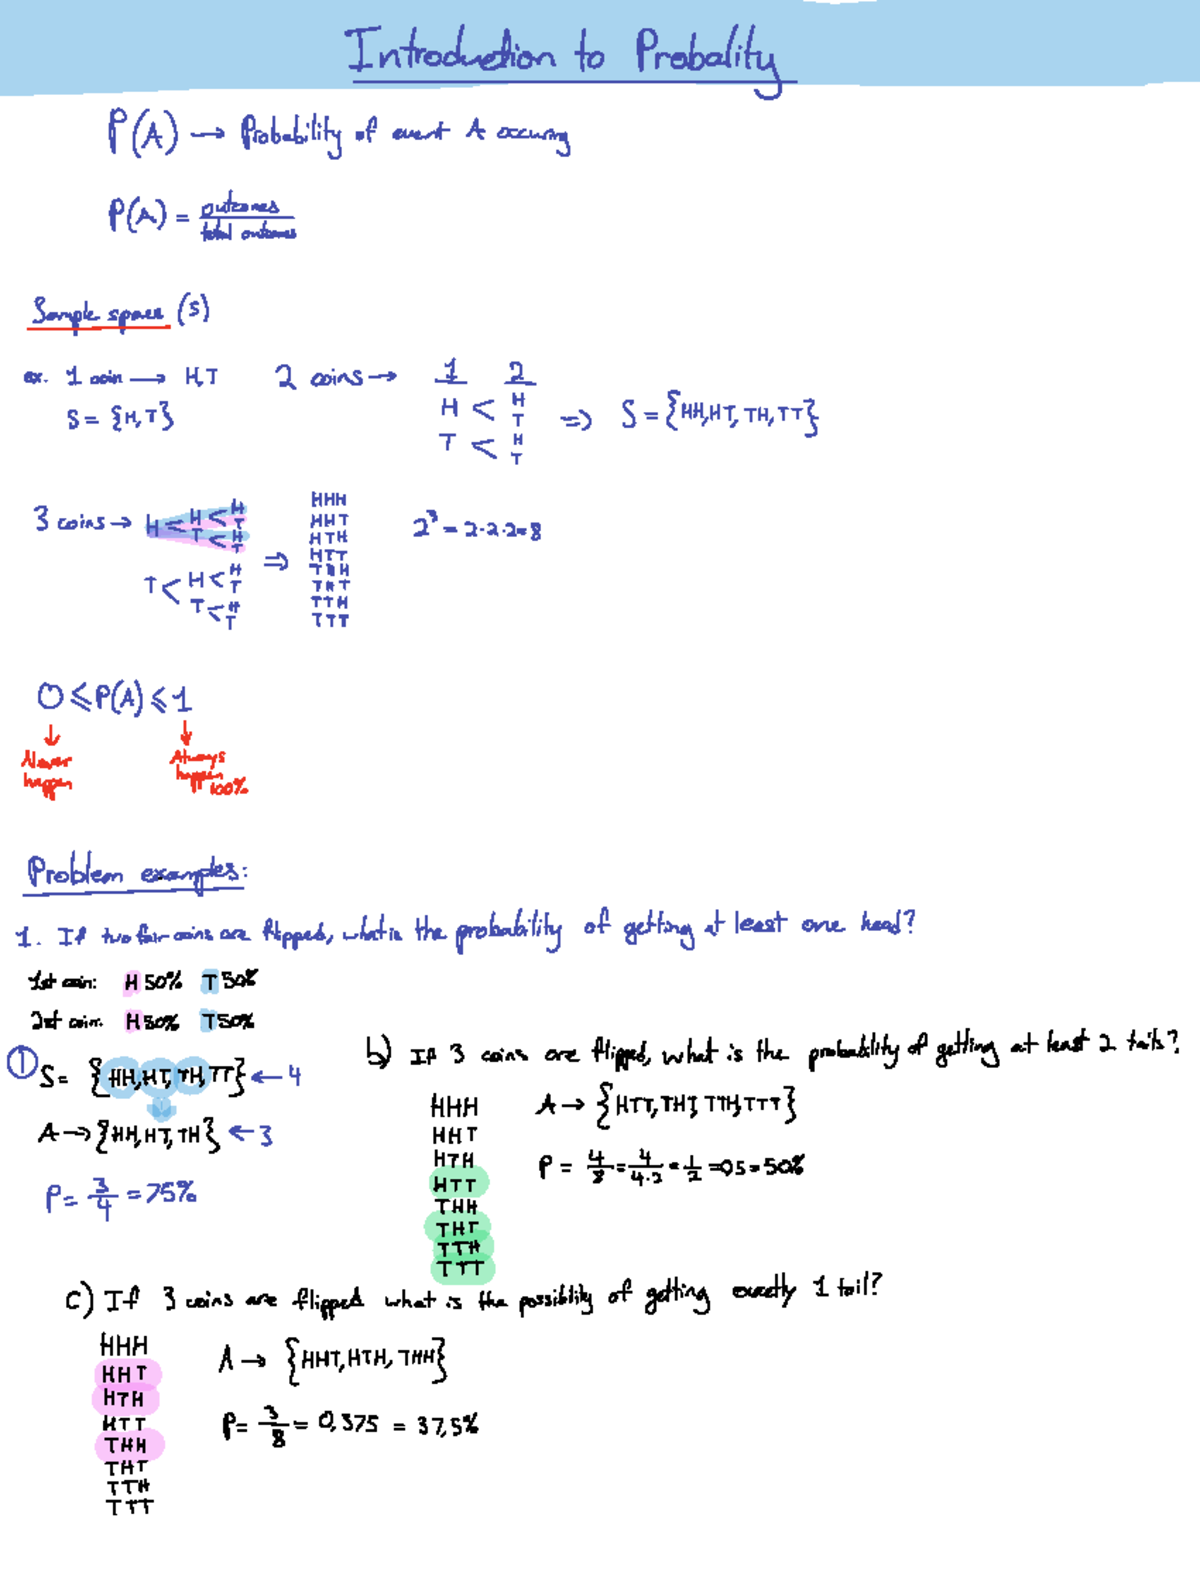 Introduction to Probality
P(A) → Probability of event A occuring
P(A) = outcomes / total outcomes
Sample space (S)
ex. 1 coin → H,T
S = {H,T}
2 coins →
1 2
H < H
T
T < H
T
=> S = {HH,HT,TH,TT}
3 coins → H < H < H
T
T < H
T
T < H < H
T
T < H
T
⇒
HHH
HHT
HTH
HTT
THH
THT
TTH
TTT
2³ = 2·2·2=8
0 ⩽ P(A) ⩽ 1
↓ ↓
Never happen
Always happen 100%
Problem examples:
1. If two fair coins are flipped, what is the probability of getting at least one head?
1st coin: H 50% T 50%
2st coin: H 50% T 50%
① S = {HH,HT,TH,TT} ← 4
A → {HH,HT,TH} ← 3
P = 3/4 = 75%
b) If 3 coins are flipped, what is the probability of getting at least 2 tails?
HHH
HHT
HTH
HTT
THH
THT
TTH
TTT
A → {HTT,THT,TTH,TTT}
P = 4/8 = 4/4·2 = 1/2 = 0.5 = 50%
c) If 3 coins are flipped what is the possiblity of getting exactly 1 tail?
HHH
HHT
HTH
HTT
THH
THT
TTH
TTT
A → {HHT,HTH,THH}
P = 3/8 = 0,375 = 37,5%